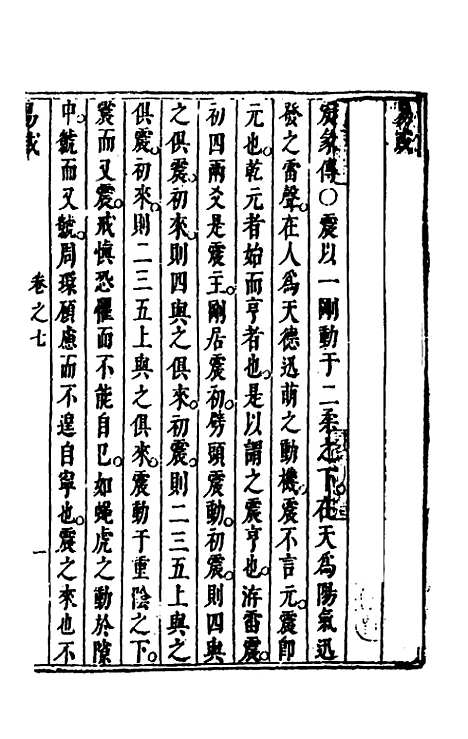 易或
宛彖傳○震以一剛動于二柔之下在天為陽氣迅
發之雷聲在人為天德迅萌之動機震不言元震卽
元也乾元者始而亨者也是以謂之震亨也洊雷震
初四兩爻是震王剛居震初劈頭震動初震則四與
之俱震初來則四與之俱來初震則二三五上與之
俱震初來則二三五上與之俱來震動于重陰之下
震而又震戒愼恐懼而不能自巳如蠅虎之動於隙
中虩而又虩周環顧慮而不遑自寧也震之來也不
易或
卷之七
一